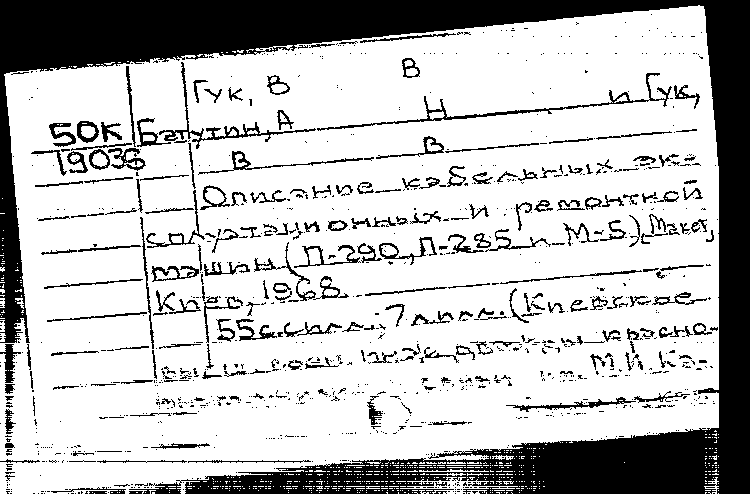 Гук, В В
50К Батутин, А Н и Гук,
19036 В В
Описание кабельных эк-
сплуатационных и ремонтной
машин (П-290, П-285 и М-5). Макет,
Киев, 1968.
55 с. с илл.; 7 л. илл. (Киевское
высш. воен. инж. дважды красно-
связи им. М.И. Ка-